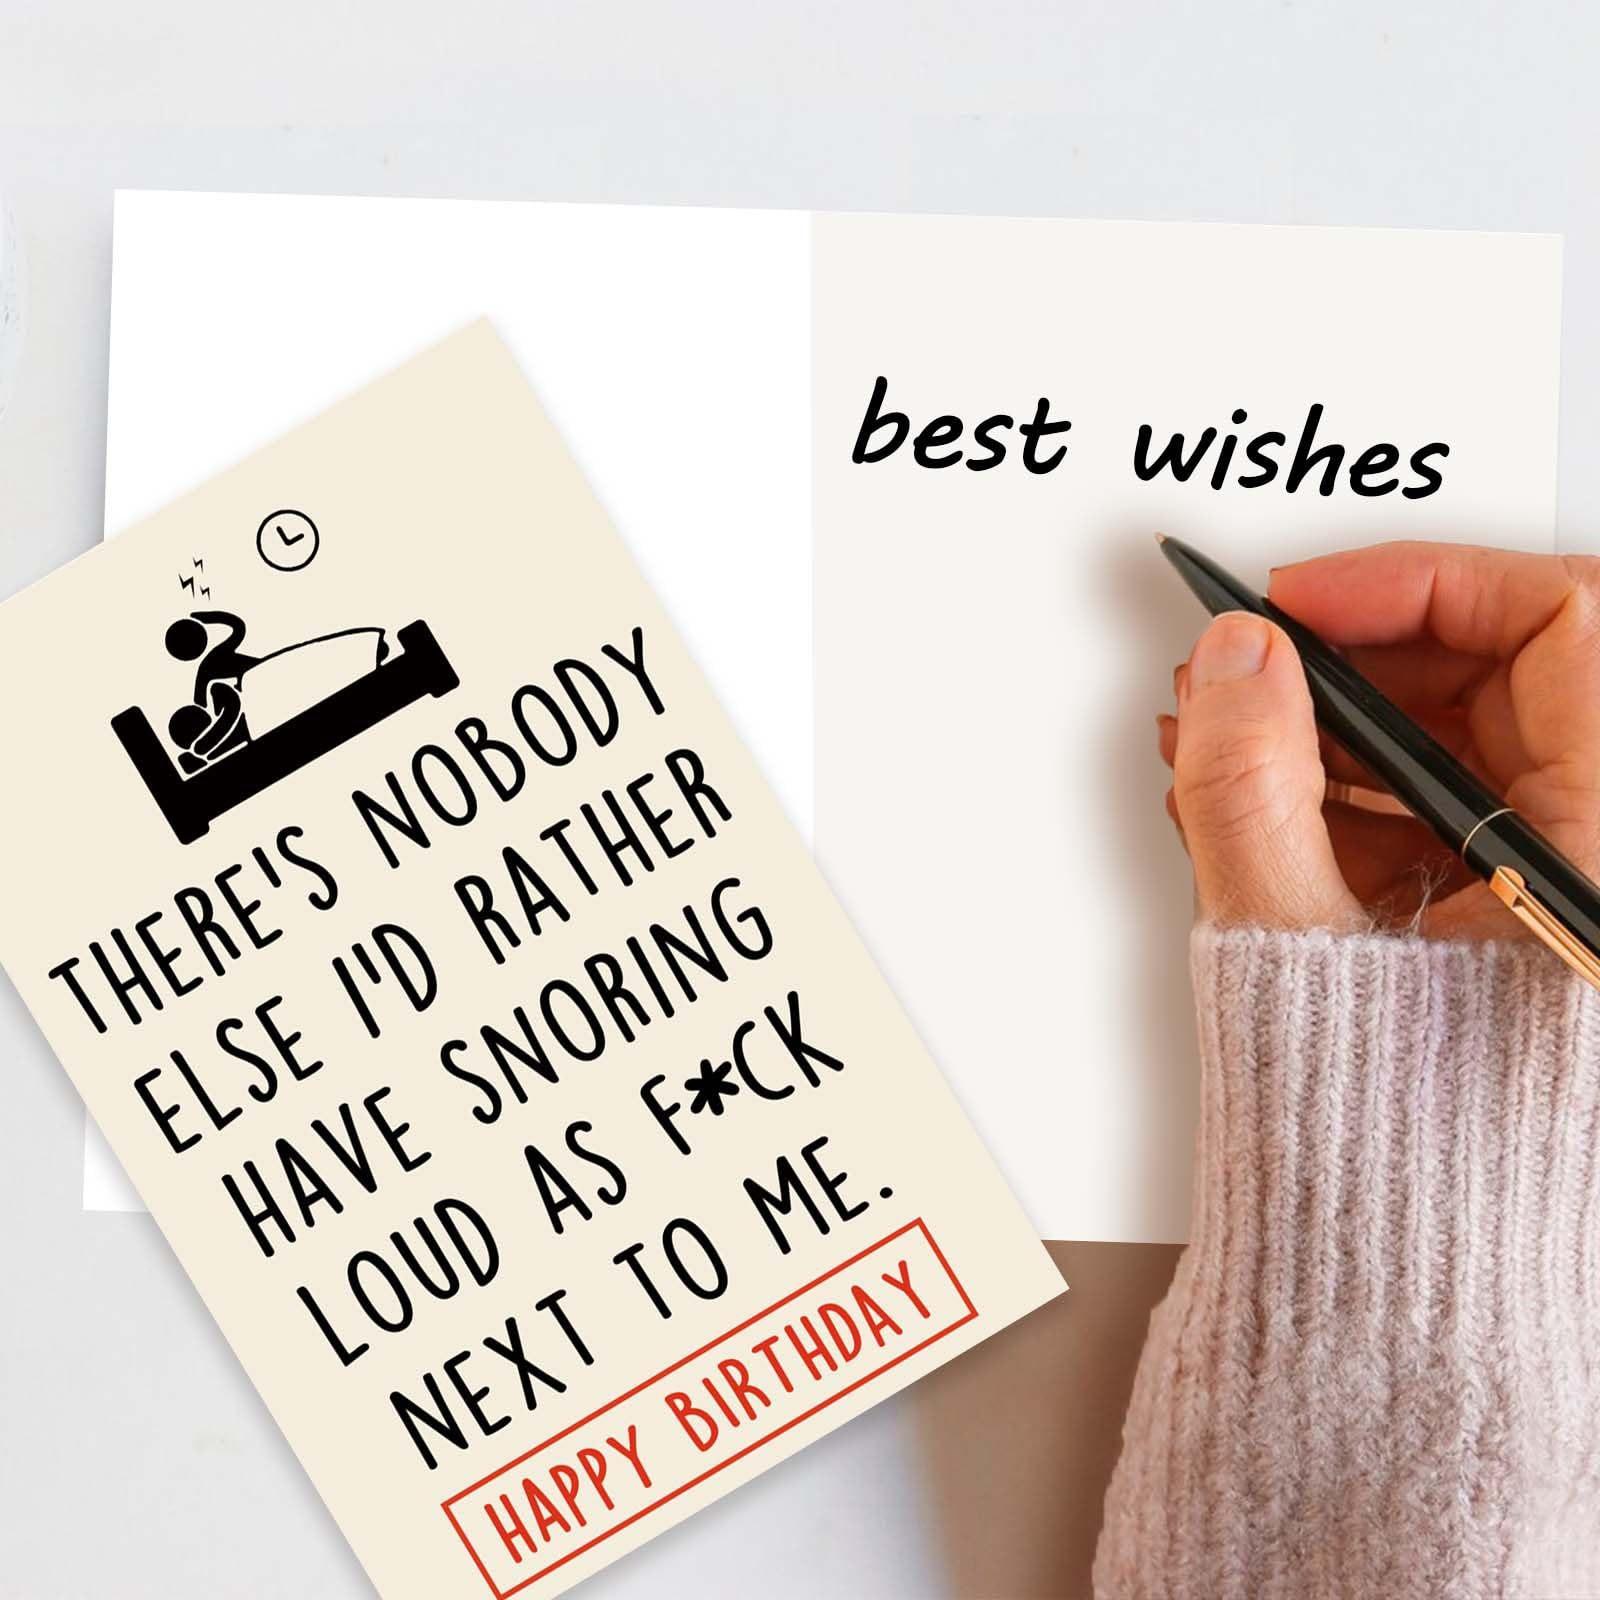 THERE'S NOBODY
ELSE I'D RATHER
HAVE SNORING
LOUD AS F*CK
NEXT TO ME.
HAPPY BIRTHDAY
best wishes